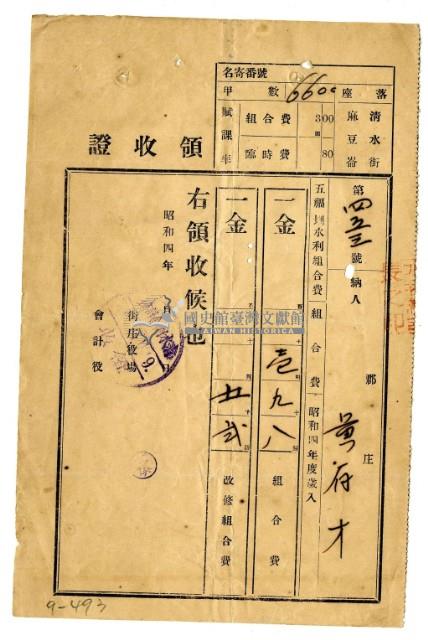 名寄番號
甲數 6600
賦課率
組合費 300
臨時費 80
座落
清水街
麻豆崙
領收證
第四五三號
納人
郡
庄
黃存才
五福圳水利組合費
組合費
昭和四年度歲入
一金
壱九八
組合費
一金
五弐
改修組合費
右領收候也
昭和四年
月
日
街庄役場
會計役
國史館臺灣文獻館
TAIWAN HISTORICA
9-493